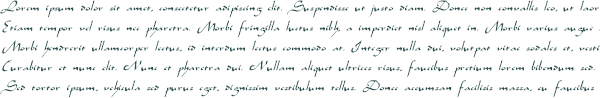 Lorem ipsum dolor sit amet, consectetur adipiscing elit. Suspendisse ut justo diam. Donec non convallis leo, ut laor
Etiam tempor vel risus nec pharetra. Morbi fringilla luctus nibh, a imperdiet nisl aliquet in. Morbi varius augue
Morbi hendrerit ullamcorper lectus, id interdum lectus commodo at. Integer nulla dui, volutpat vitae sodales et, vesti
Curabitur et nunc elit. Nunc et pharetra dui. Nullam aliquet ultrices risus, faucibus pretium lorem bibendum sed.
Sed tortor ipsum, vehicula sed purus eget, dignissim vestibulum tellus. Donec accumsan facilisis massa, eu faucibus